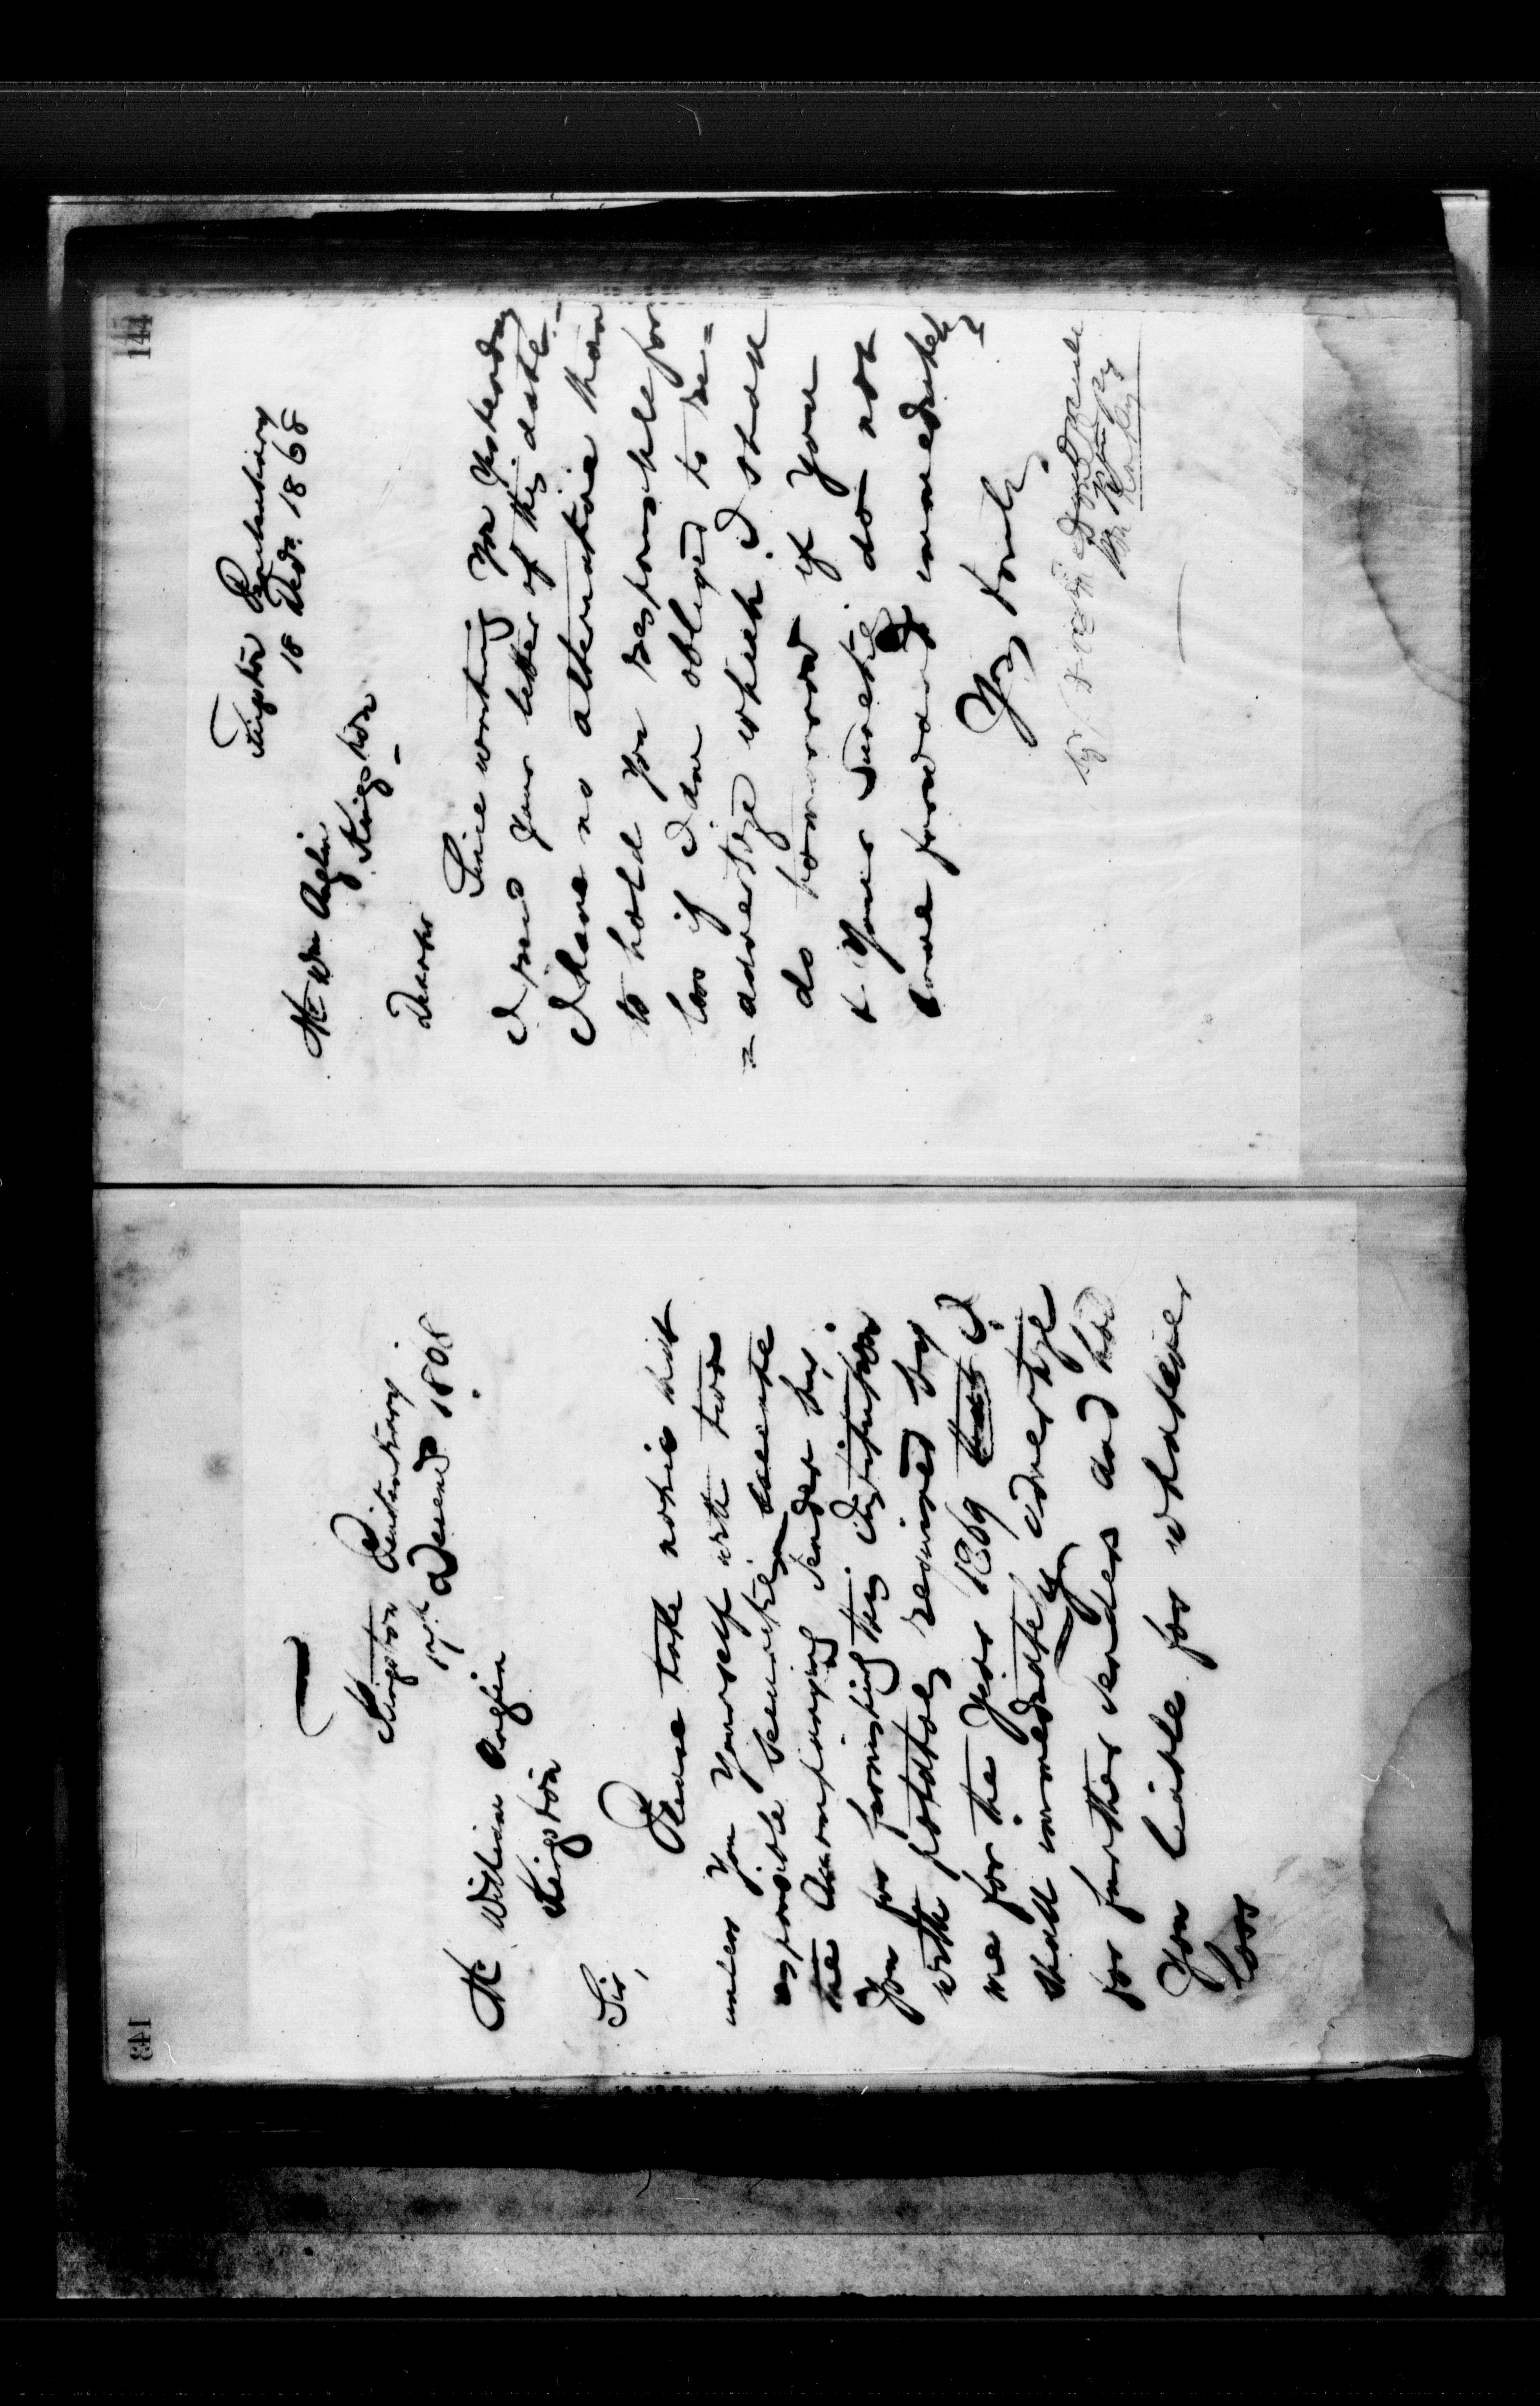 143
Kingston Penitentiary
17th Decemr 1868
Mr William Anglin
Kingston
Sir,
Please take notice that
unless you yourself with two
responsible securities execute
the accompanying tender by
you for furnishing this Institution
with potatoes required by
me for the year 1869 I
shall immediately advertize
for further tenders and hold
you liable for whatever
loss
144
Kingston Penitentiary
18 Decr. 1868
Mr Wm Anglin
Kingston
Dear Sir
Since writing you yesterday
I recd your letter of this date.
I have no alternative than
to hold you responsible for
loss if I am obliged to re=
=advertize which I shall
do tomorrow if you
& your sureties do not
come forward immediately
Yrs truly